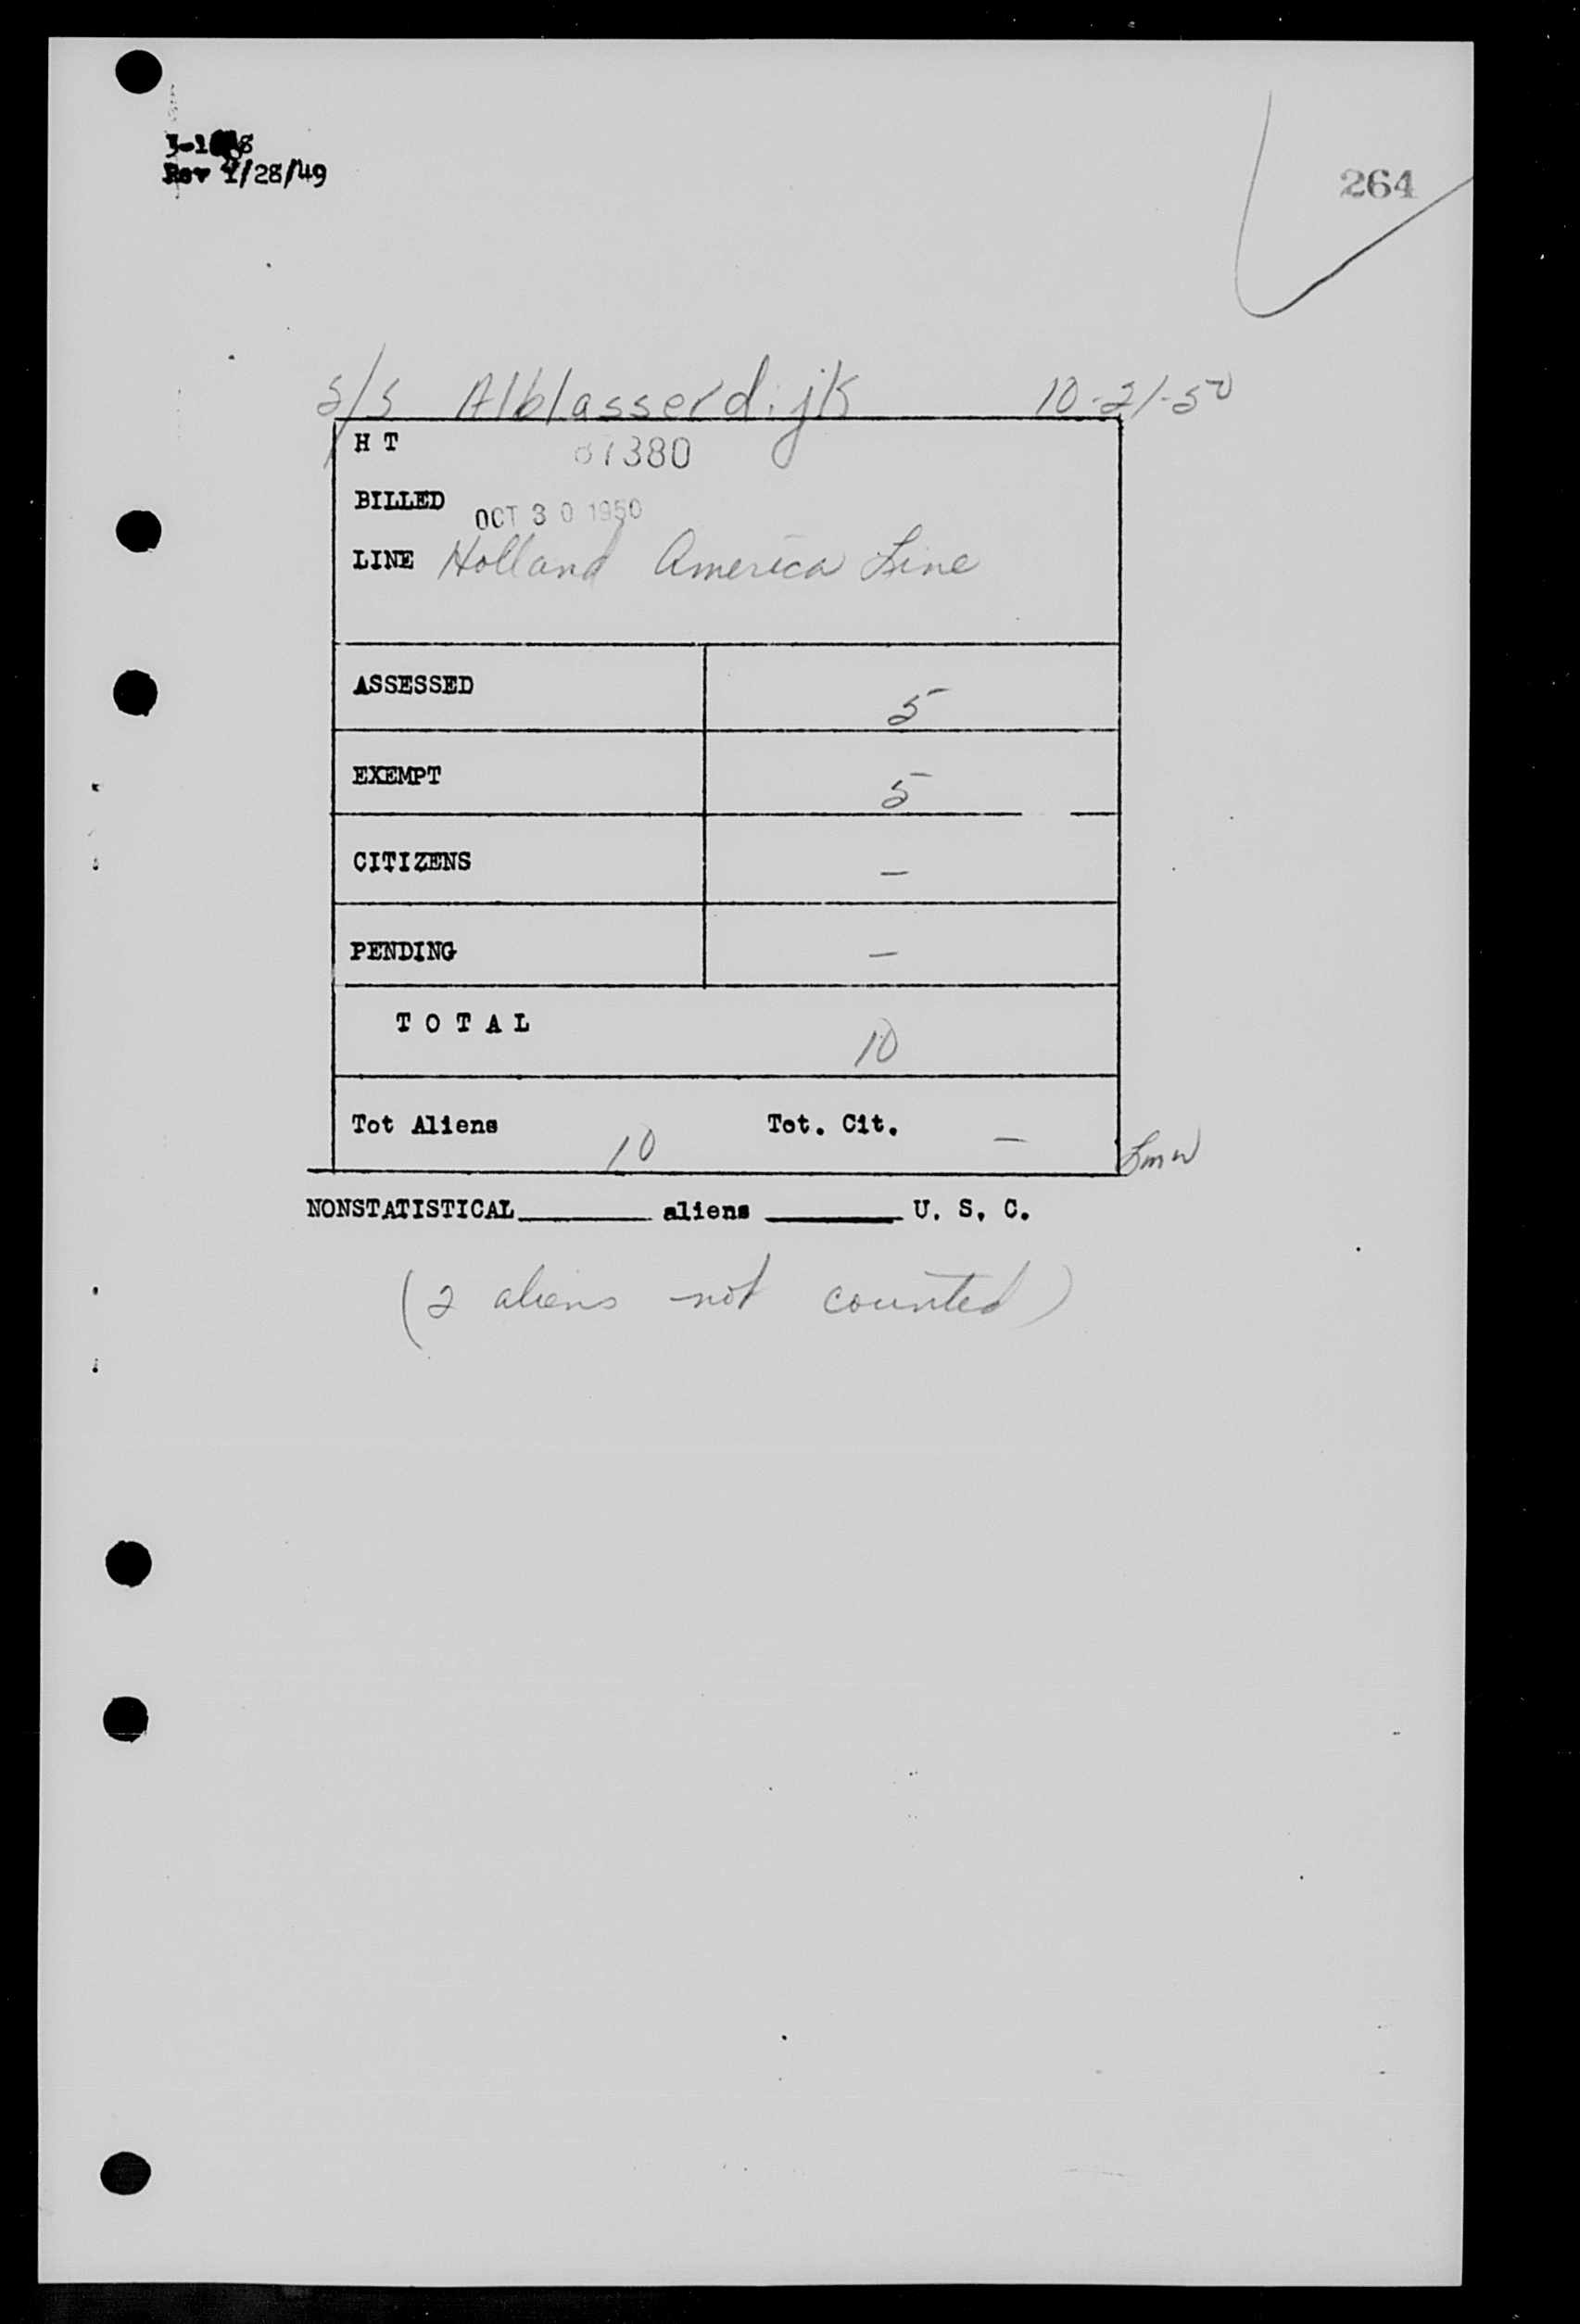 Rev 1/28/49
264
S/S Alblasserdijk 10-21-50
H T 67380
BILLED OCT 30 1950
LINE Holland America Line
ASSESSED 5
EXEMPT 5
CITIZENS —
PENDING —
TOTAL 10
Tot Aliens 10 Tot. Cit. —
Lmw
NONSTATISTICAL______ aliens ______ U. S. C.
(2 aliens not counted)